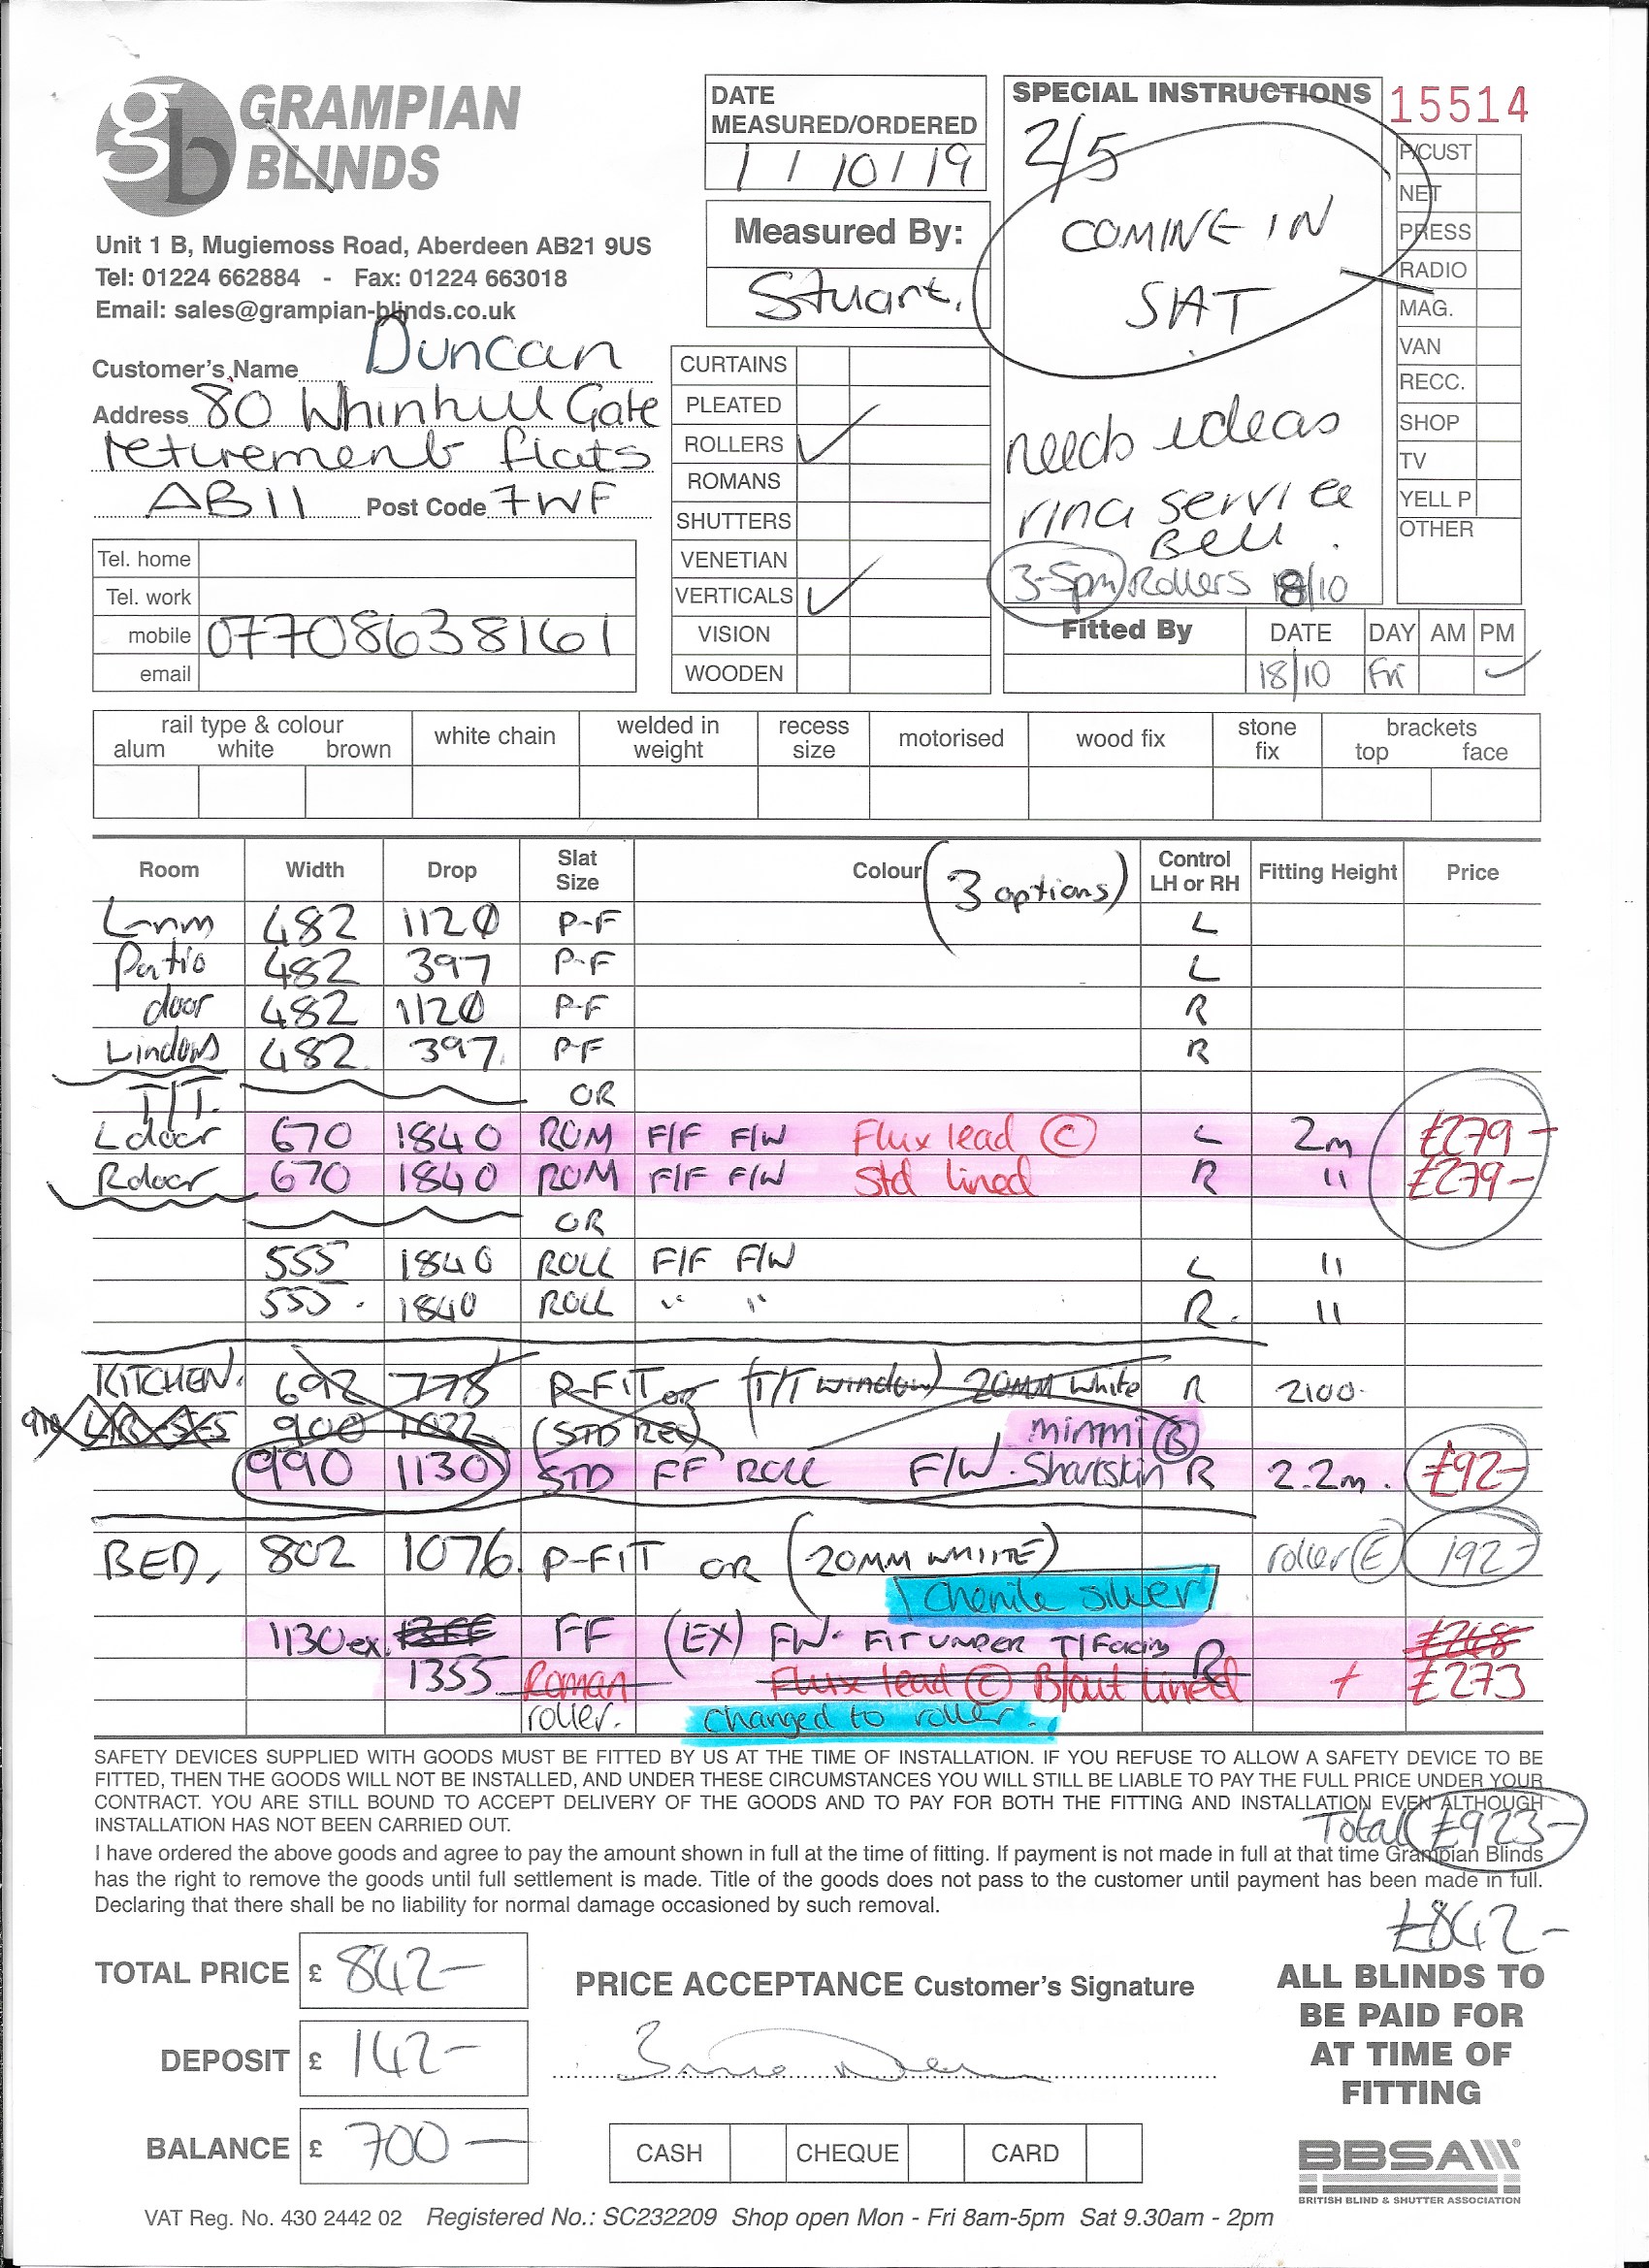 GRAMPIAN
BLINDS
Unit 1 B, Mugiemoss Road, Aberdeen AB21 9US
Tel: 01224 662884 - Fax: 01224 663018
Email: sales@grampian-blinds.co.uk
Customer's Name Duncan
Address 80 Whinhill Gate
retirement flats
AB11 Post Code 7WF
Tel. home
Tel. work
mobile 07708638161
email
DATE
MEASURED/ORDERED
1 / 10 / 19
Measured By:
Stuart.
CURTAINS
PLEATED
ROLLERS ✓
ROMANS
SHUTTERS
VENETIAN
VERTICALS ✓
VISION
WOODEN
SPECIAL INSTRUCTIONS
2/5
COMING IN
SAT
needs ideas
ring service
Bell.
3-5pm Rollers 18/10
15514
P/CUST
NET
PRESS
RADIO
MAG.
VAN
RECC.
SHOP
TV
YELL P
OTHER
Fitted By DATE DAY AM PM
18/10 Fri ✓
rail type & colour white chain welded in weight recess size motorised wood fix stone fix brackets
alum white brown top face
Room Width Drop Slat Size Colour (3 options) Control LH or RH Fitting Height Price
L-rm 482 1120 P-F L
Patio 482 397 P-F L
door 482 1120 P-F R
Windows 482 397 P-F R
T/T. OR
L door 670 1840 ROM F/F F/W Flux lead (C) L 2m £279-
R door 670 1840 ROM F/F F/W Std lined R " £279-
OR
555 1840 ROLL F/F F/W L "
555 1840 ROLL " " R. "
KITCHEN. 692 778 P-FIT or (T/T window) 20MM White R 2100
900 1022 (STD REC) minmi (B)
990 1130 STD FF ROLL F/W. Sharkskin R 2.2m. £92-
BED, 802 1076. P-FIT OR (20MM WHITE) roller (E) 192-
Chenile silver
1130 ex. FF (EX) FW. FIT UNDER T/Facing R £268
1355 Roman Flux lead (C) B/out lined + £273
roller. changed to roller.
SAFETY DEVICES SUPPLIED WITH GOODS MUST BE FITTED BY US AT THE TIME OF INSTALLATION. IF YOU REFUSE TO ALLOW A SAFETY DEVICE TO BE
FITTED, THEN THE GOODS WILL NOT BE INSTALLED, AND UNDER THESE CIRCUMSTANCES YOU WILL STILL BE LIABLE TO PAY THE FULL PRICE UNDER YOUR
CONTRACT. YOU ARE STILL BOUND TO ACCEPT DELIVERY OF THE GOODS AND TO PAY FOR BOTH THE FITTING AND INSTALLATION EVEN ALTHOUGH
INSTALLATION HAS NOT BEEN CARRIED OUT.
Total £923-
I have ordered the above goods and agree to pay the amount shown in full at the time of fitting. If payment is not made in full at that time Grampian Blinds
has the right to remove the goods until full settlement is made. Title of the goods does not pass to the customer until payment has been made in full.
Declaring that there shall be no liability for normal damage occasioned by such removal.
£842-
TOTAL PRICE £ 842-
DEPOSIT £ 142-
BALANCE £ 700-
PRICE ACCEPTANCE Customer's Signature
CASH CHEQUE CARD
ALL BLINDS TO
BE PAID FOR
AT TIME OF
FITTING
BBSA
BRITISH BLIND & SHUTTER ASSOCIATION
VAT Reg. No. 430 2442 02 Registered No.: SC232209 Shop open Mon - Fri 8am-5pm Sat 9.30am - 2pm